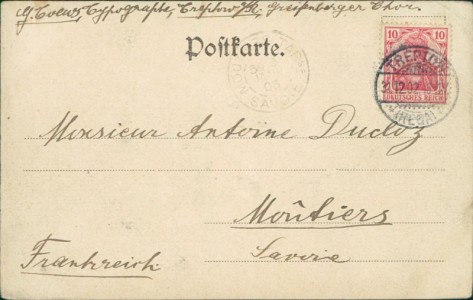 G. Loewe, Typographe, Treptow a/R., Greifenberger Chor.
Postkarte.
10 10
DEUTSCHES REICH
TREPTOW
(REGA)
SAVOIE
Monsieur Antoine Ducloz
Moûtiers
Savoie
Frankreich